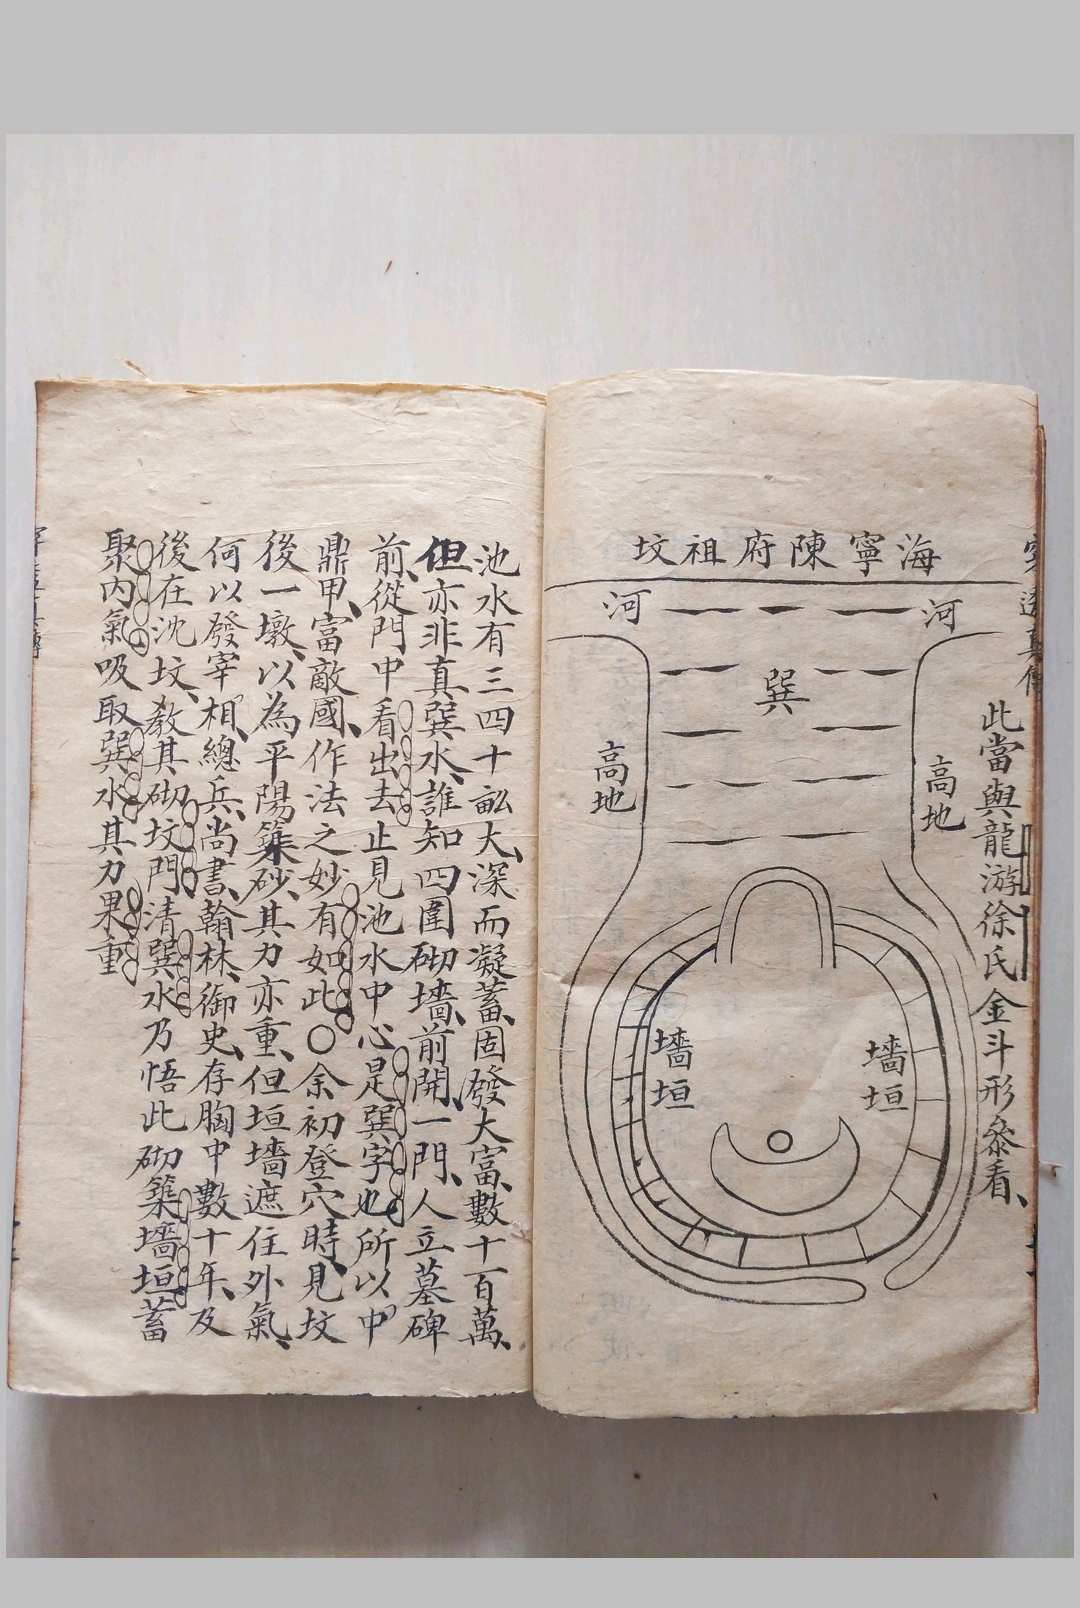 此當與龍游徐氏金斗形叅看、
海寧陳府祖坟
河
河
巽
高地
高地
墻垣
墻垣
池水有三四十畝大、深而凝蓄、固發大富、數十百萬、
但亦非真巽水、誰知四圍砌墻、前開一門、人立墓碑
前、從門中看出去止見池水中心是巽字也所以中
鼎甲、富敵國、作法之妙有如此〇余初登穴時、見坟
後一墩、以為平陽築砂、其力亦重、但垣墻遮住外氣、
何以發宰相、總兵、尚書、翰林、御史、存胸中數十年、及
後在沈坟、教其砌坟門、清巽水乃悟此砌築墻垣、蓄
聚內氣吸取巽水其力果重